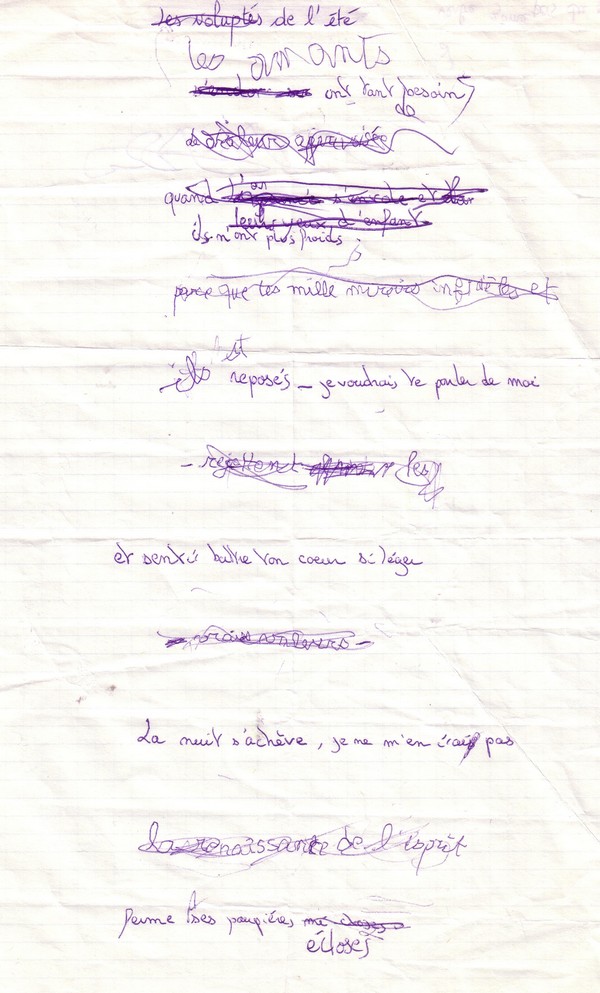 Les voluptés de l'été
les amants
ont tant besoin
de
de chaleur apprivoisée
quand l'or s'envole et
leurs yeux d'enfant
ils n'ont plus froids
parce que tes mille miroirs infidèles et
est
reposés _ je voudrais te parler de moi
- rejettent les
et sentir battre ton coeur si léger
-
La nuit s'achève, je ne m'en irai pas
la renaissance de l'esprit
Ferme tes paupières mi closes
écloses